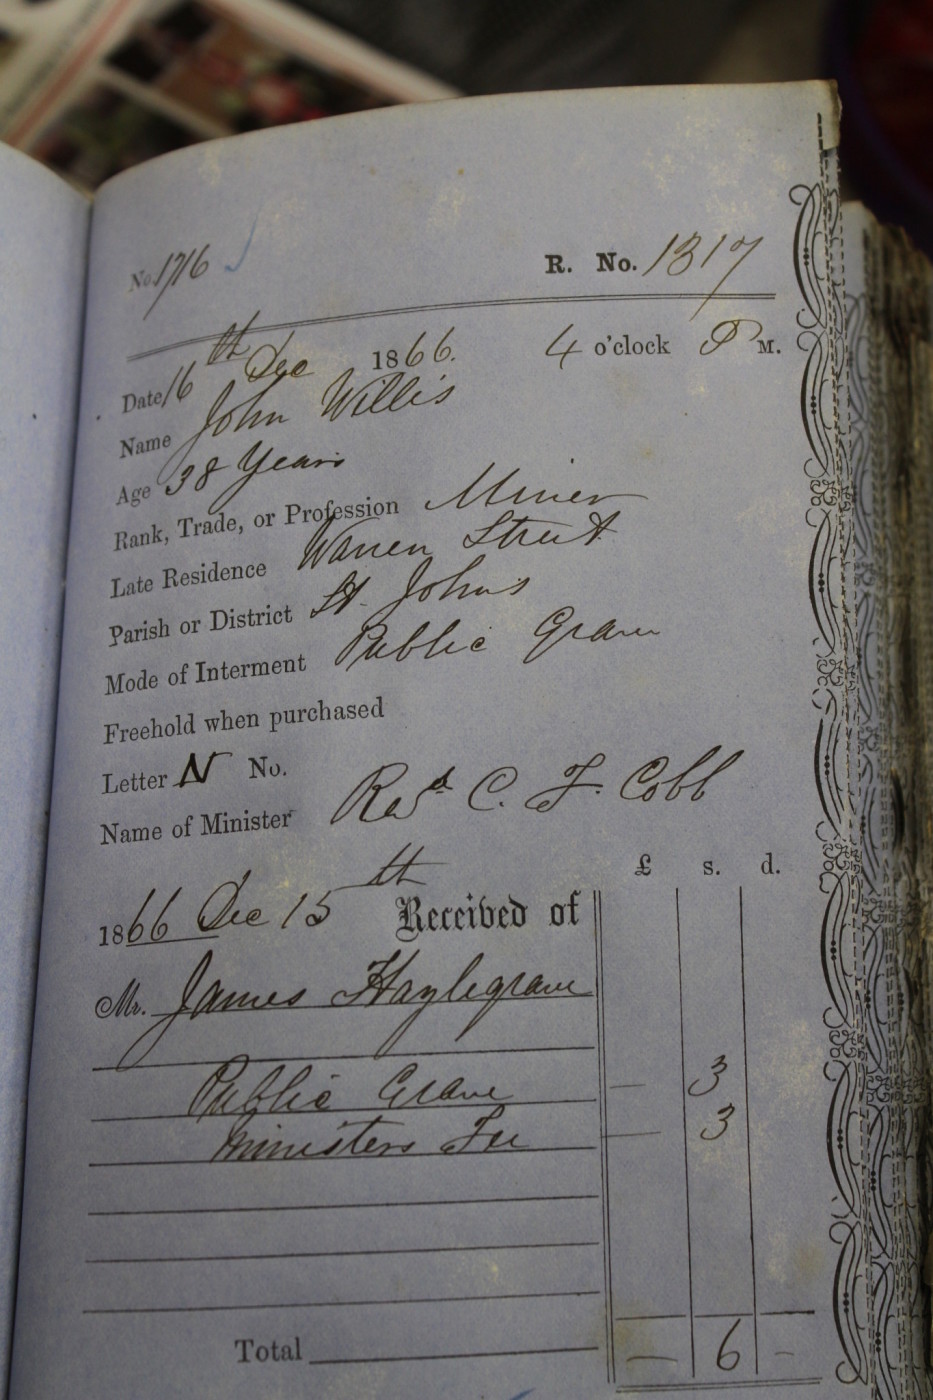 No. 1716 R. No. 1317
Date 16th Dec 1866. 4 o'clock P M.
Name John Willis
Age 38 Years
Rank, Trade, or Profession Miner
Late Residence Warren Street
Parish or District St. Johns
Mode of Interment Public Grave
Freehold when purchased
Letter N No.
Name of Minister Revd C. F. Cobb
£ s. d.
1866 Dec 15th Received of
Mr. James Haylegrave
Public Grave — 3
Ministers Fee — 3
Total — 6 —